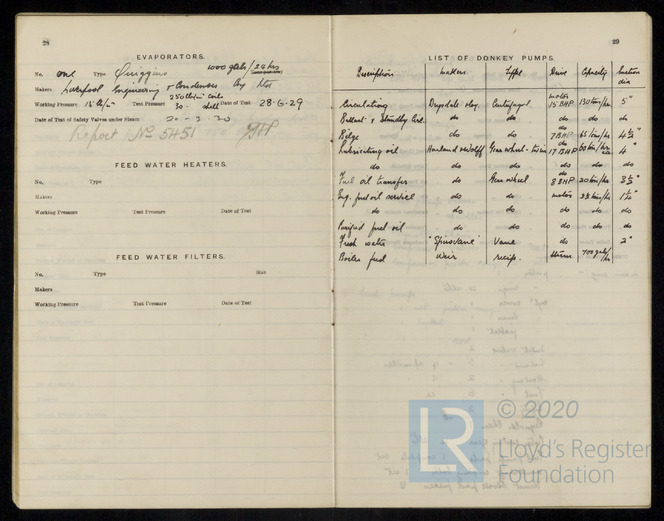 28
EVAPORATORS.
1000 galls/24 hrs
No. one Type Quiggins
Makers Liverpool Engineering & Condenser Coy Ltd
250 lb/in² coils
Working Pressure 15 lb/in² Test Pressure 30 - shell Date of Test 28-6-29
Date of Test of Safety Valves under Steam 20-3-30
Report No 5451
FEED WATER HEATERS.
No. Type
Makers
Working Pressure Test Pressure Date of Test
FEED WATER FILTERS.
No. Type Size
Makers
Working Pressure Test Pressure Date of Test
29
LIST OF DONKEY PUMPS.
Description Makers Type Drive Capacity Suction dia
Circulating Drysdale Centrifugal motor 15 BHP 130 tons/hr 5"
Ballast & Standby Circ. do do do do do
Bilge do do do 7 BHP 65 tons/hr 4½"
Lubricating oil Harland & Wolff Gear wheel - twin do 17 BHP 60 tons/hr 4"
do do do do do do
Fuel oil transfer do Gear wheel do 8 BHP 20 tons/hr 3½"
Eng. fuel oil service do do motor
do do do do do do
Purified fuel oil do do do do do
Fresh water "Spinovane" Vane do 2"
Boiler feed Weir recip. steam 700 gals/hr
LR © 2020
Lloyd's Register
Foundation